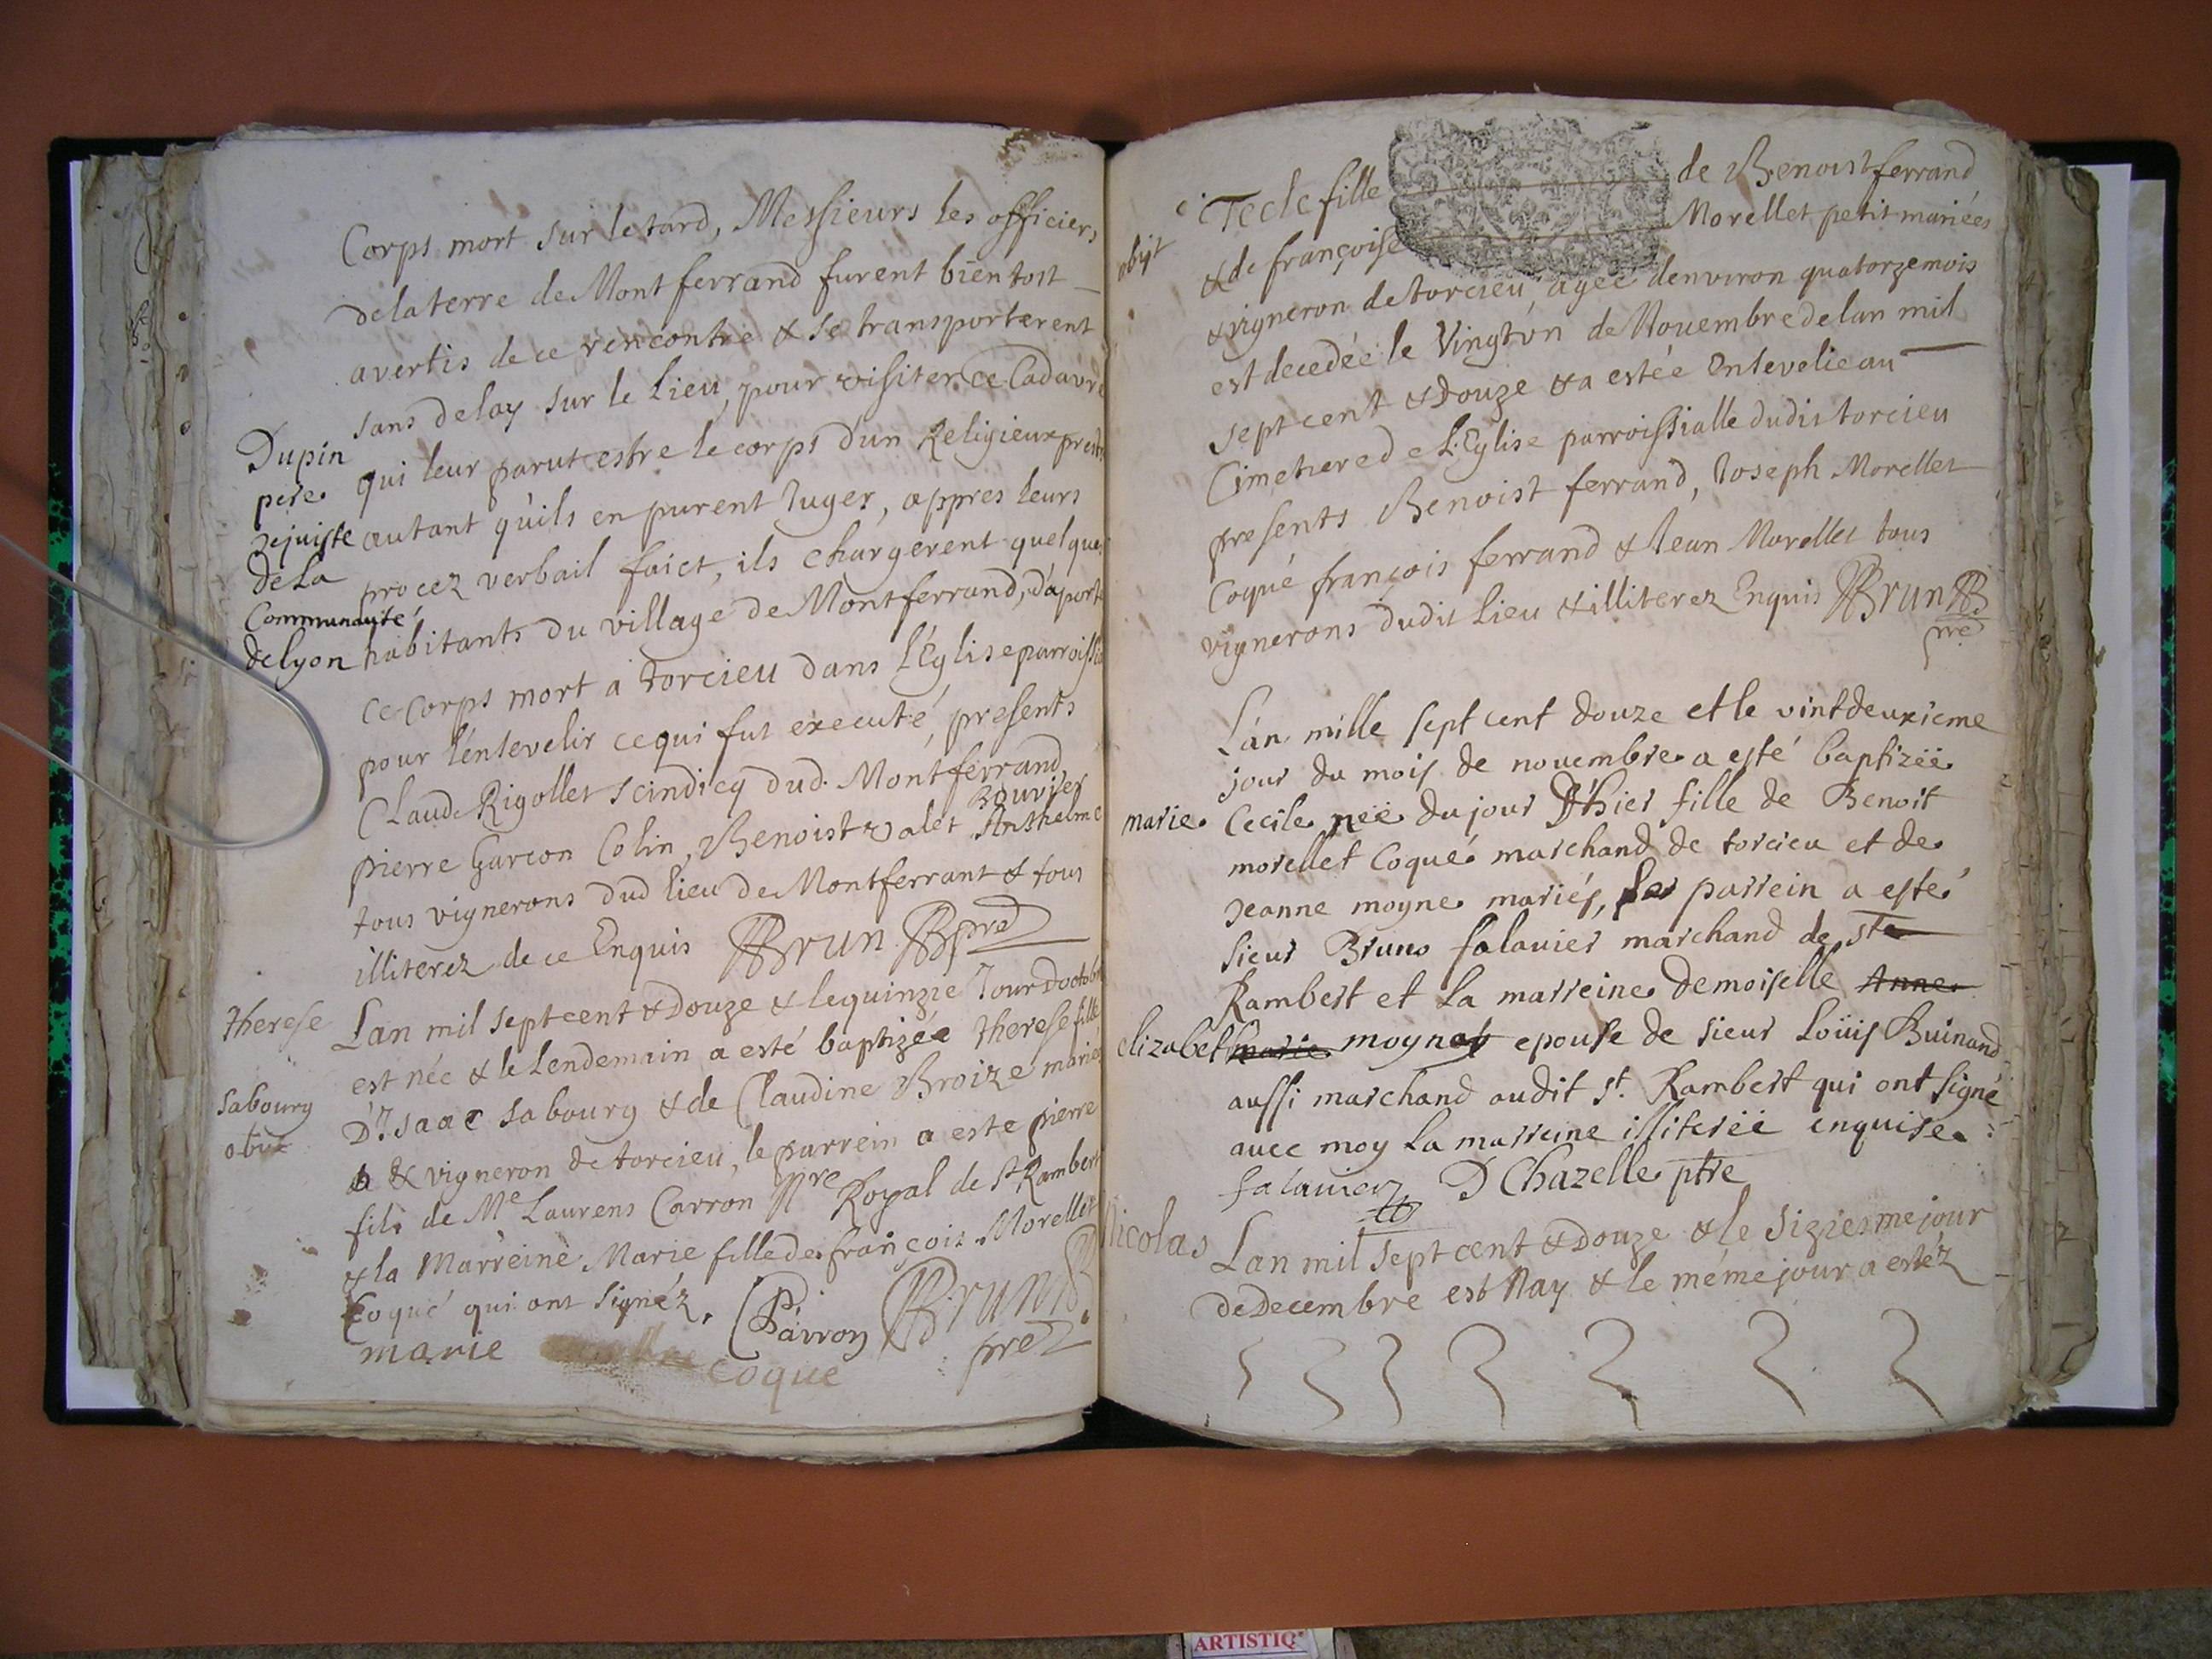 Corps mort sur le tard, Messieurs les officiers
de la terre de Montferrand furent bientost
avertis de ce rencontre & se transporterent
sans delay sur le Lieu, pour visiter ce Cadavre
Dupin
pere
jejuiste
de La
Communauté
de lyon
qui leur parut estre le corps d'un Religieux prest
autant qu'ils en purent Juger, appres leurs
procez verbail faict, ils chargerent quelques
habitants du village de Montferrand, d'aport
ce Corps mort a torcieu dans l'Eglise parroissi
pour l'ensevelir ce qui fut executé, presents
Claude Rigollet scindicq dud. Montferrand,
Bouvier
pierre Garcon Colin, Benoist valet Anthelme
tous vignerons dud lieu de Montferrant & tous
illiterez de ce Enquis Brun pre
therese
Lan mil sept cent & Douze & le quinzie Jour Doctob
est née & le Lendemain a esté baptizée therese fille
Sabourg
obiit
D'Isaac Sabourg & de Claudine Broize mariés
& vigneron de torcieu, le parrein a este pierre
fils de Me Laurens Carron Nre Royal de St Rambert
& la Marreine Marie fille de françois Morellet
Coqué qui ont signéz. P. Carron Brun
marie coque pre
Tecle fille de Benoist ferrand
obijt
& de françoise Morellet petit mariées
& vigneron de torcieu, agée denviron quatorze mois
est decedée le Vingt'un de Nouembre de lan mil
sept cent & Douze & a estée Ensevelie au
Cimetiere de L'Eglise parroissialle dudit torcieu
presents Benoist ferrand, Joseph Morellet
Coqué françois ferrand & Jean Morellet tous
vignerons dudit Lieu & illiterez Enquis Brun
pre
L'an mille sept cent douze et le vintdeuxieme
jour du mois de nouembre a esté baptizëe
marie Cecile nëe du jour D'hier fille de Benoit
morellet Coqué marchand de torcieu et de
Jeanne moyne mariés, parrein a esté
sieur Bruno falauier marchand de st
Rambert et La marreine Demoiselle Anne
elizabet marie moyne epouse de sieur Loüis Buinand
aussi marchand audit st. Rambert qui ont signé
auec moy La marreine illiterëe enquise
falauier D Chazelle ptre
Nicolas
Lan mil sept cent & Douze & le siziesme jour
de Decembre est Nay & le méme jour a estéz